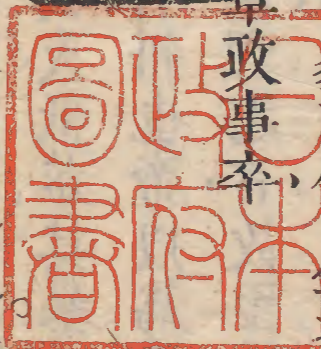 政事卒
日本
政府
圖書